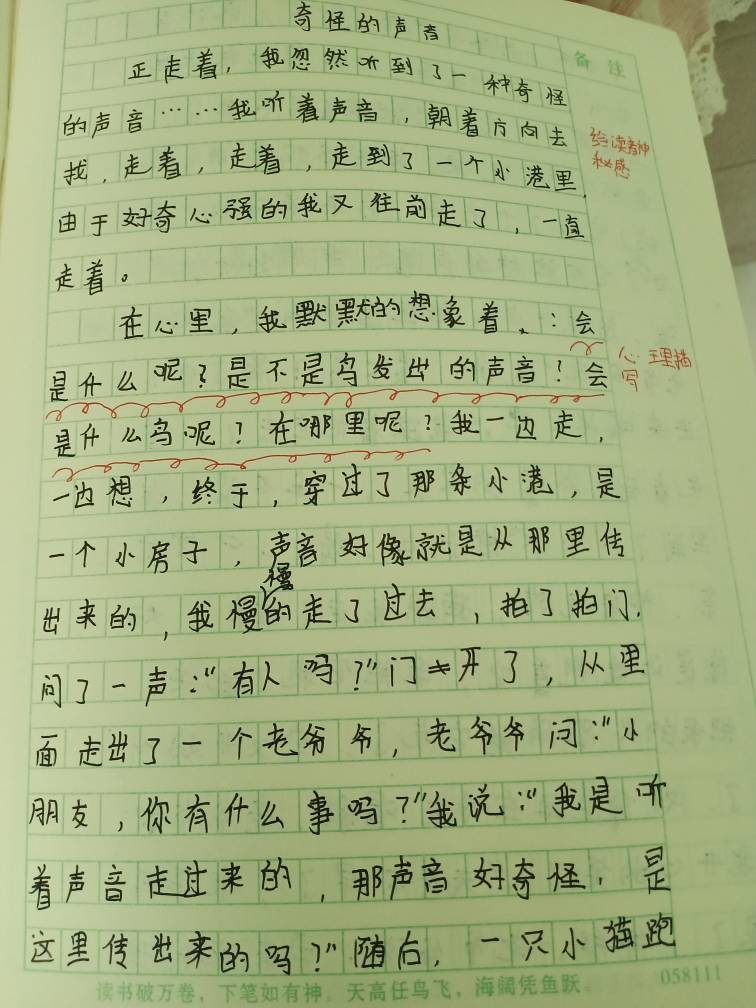 奇怪的声音
备注
正走着，我忽然听到了一种奇怪
的声音……我听着声音，朝着方向去
找，走着，走着，走到了一个小港里，
给读者神
秘感
由于好奇心强的我又往前走了，一直
走着。
在心里，我默默的想象着，：会
是什么呢？是不是鸟发出的声音？会
心理描
写
是什么鸟呢？在哪里呢？我一边走，
一边想，终于，穿过了那条小港，是
一个小房子，声音好像就是从那里传
出来的，我慢慢的走了过去，拍了拍门，
问了一声：“有人吗？”门开了，从里
面走出了一个老爷爷，老爷爷问：“小
朋友，你有什么事吗？”我说：“我是听
着声音走过来的，那声音好奇怪，是
这里传出来的吗？”随后，一只小猫跑
读书破万卷，下笔如有神。天高任鸟飞，海阔凭鱼跃。
058111